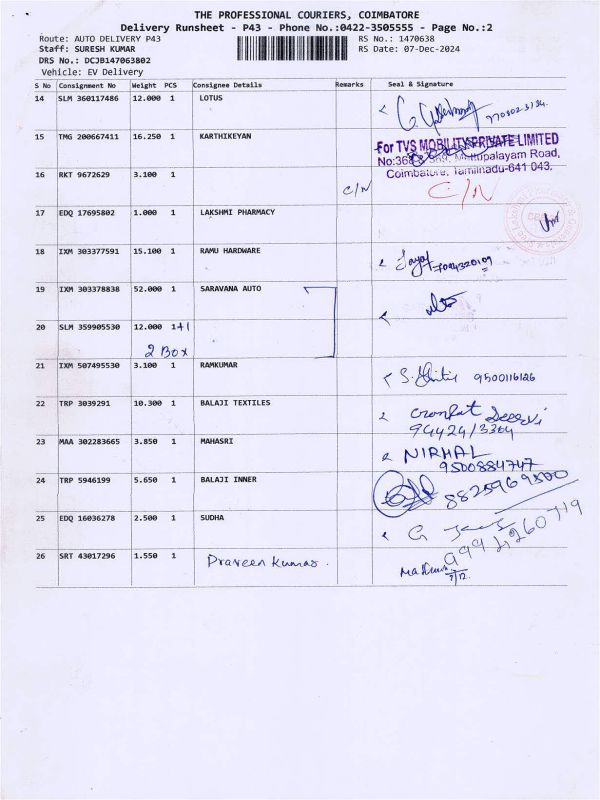 THE PROFESSIONAL COURIERS, COIMBATORE
Delivery Runsheet - P43 - Phone No.:0422-3505555 - Page No.:2
Route: AUTO DELIVERY P43 RS No.: 1470638
Staff: SURESH KUMAR RS Date: 07-Dec-2024
DRS No.: DCJB147063802
Vehicle: EV Delivery
S No Consignment No Weight PCS Consignee Details Remarks Seal & Signature
14 SLM 360117486 12.000 1 LOTUS
15 TMG 200667411 16.250 1 KARTHIKEYAN
For TVS MOBILITY PRIVATE LIMITED
Mettupalayam Road,
Coimbatore, Tamilnadu-641 043.
16 RKT 9672629 3.100 1 C/N C/N
17 EDQ 17695802 1.000 1 LAKSHMI PHARMACY
18 IXM 303377591 15.100 1 RAMU HARDWARE
19 IXM 303378838 52.000 1 SARAVANA AUTO
20 SLM 359905530 12.000 1+1
2 Box
21 IXM 507495530 3.100 1 RAMKUMAR 9500116126
22 TRP 3039291 10.300 1 BALAJI TEXTILES
23 MAA 302283665 3.850 1 MAHASRI NIRMAL
9500884747
24 TRP 5946199 5.650 1 BALAJI INNER 8825969500
25 EDQ 16036278 2.500 1 SUDHA
26 SRT 43017296 1.550 1 Praveen Kumar.